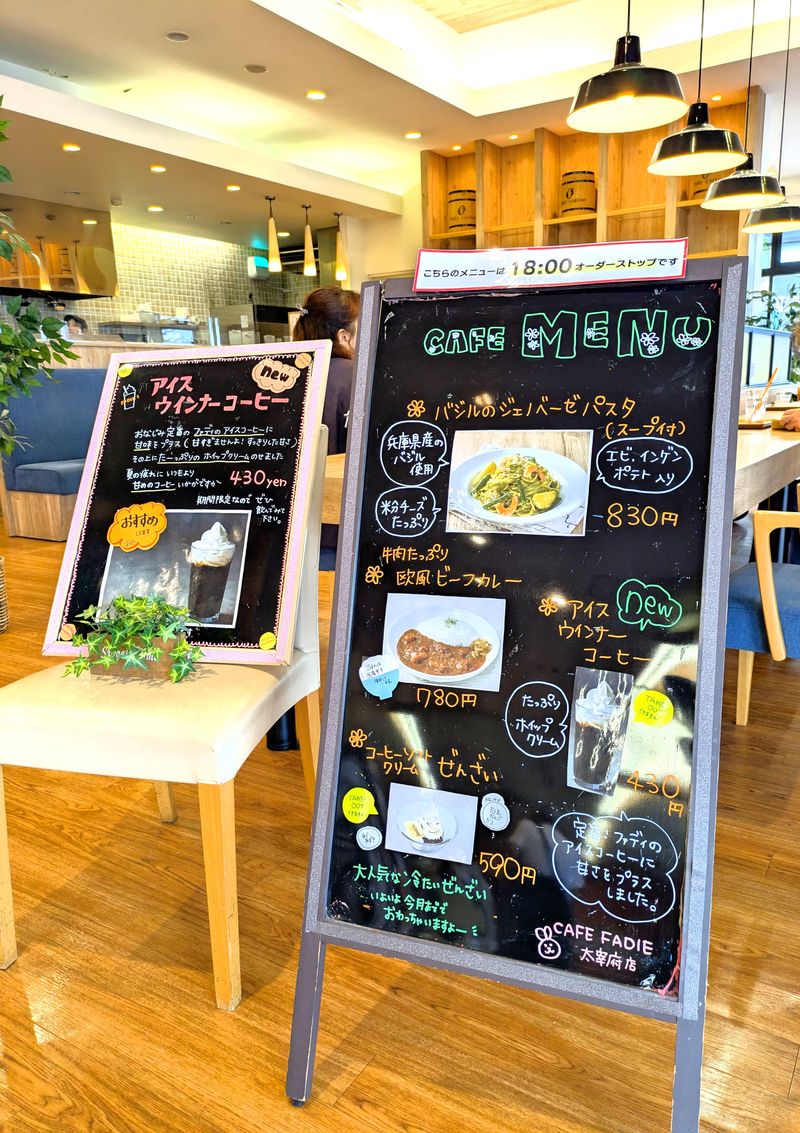 こちらのメニューは 18:00 オーダーストップです
CAFE MENU
バジルのジェノベーゼパスタ
(スープ付)
兵庫県産の
バジル
使用
粉チーズ
たっぷり
エビ、インゲン
ポテト入り
830円
牛肉たっぷり
欧風ビーフカレー
780円
new
アイス
ウインナー
コーヒー
たっぷり
ホイップ
クリーム
TAKE
OUT
できます
430
円
コーヒーソフト
クリーム ぜんざい
TAKE-
OUT
できます
590円
大人気な冷たいぜんざい
いよいよ今月まで
おわっちゃいますよー
定番ファディの
アイスコーヒーに
甘さをプラス
しました。
CAFE FADIE
太宰府店
new
アイス
ウインナーコーヒー
おなじみ定番のファディのアイスコーヒーに
甘味をプラス(甘すぎませんよ!すっきりした甘さ)
その上にたーっぷりのホイップクリームのせました
夏の疲れにいもより
甘めのコーヒーいかがですか
430yen
期間限定なので ぜひ
飲んでみて
下さい。
おすすめ
してます